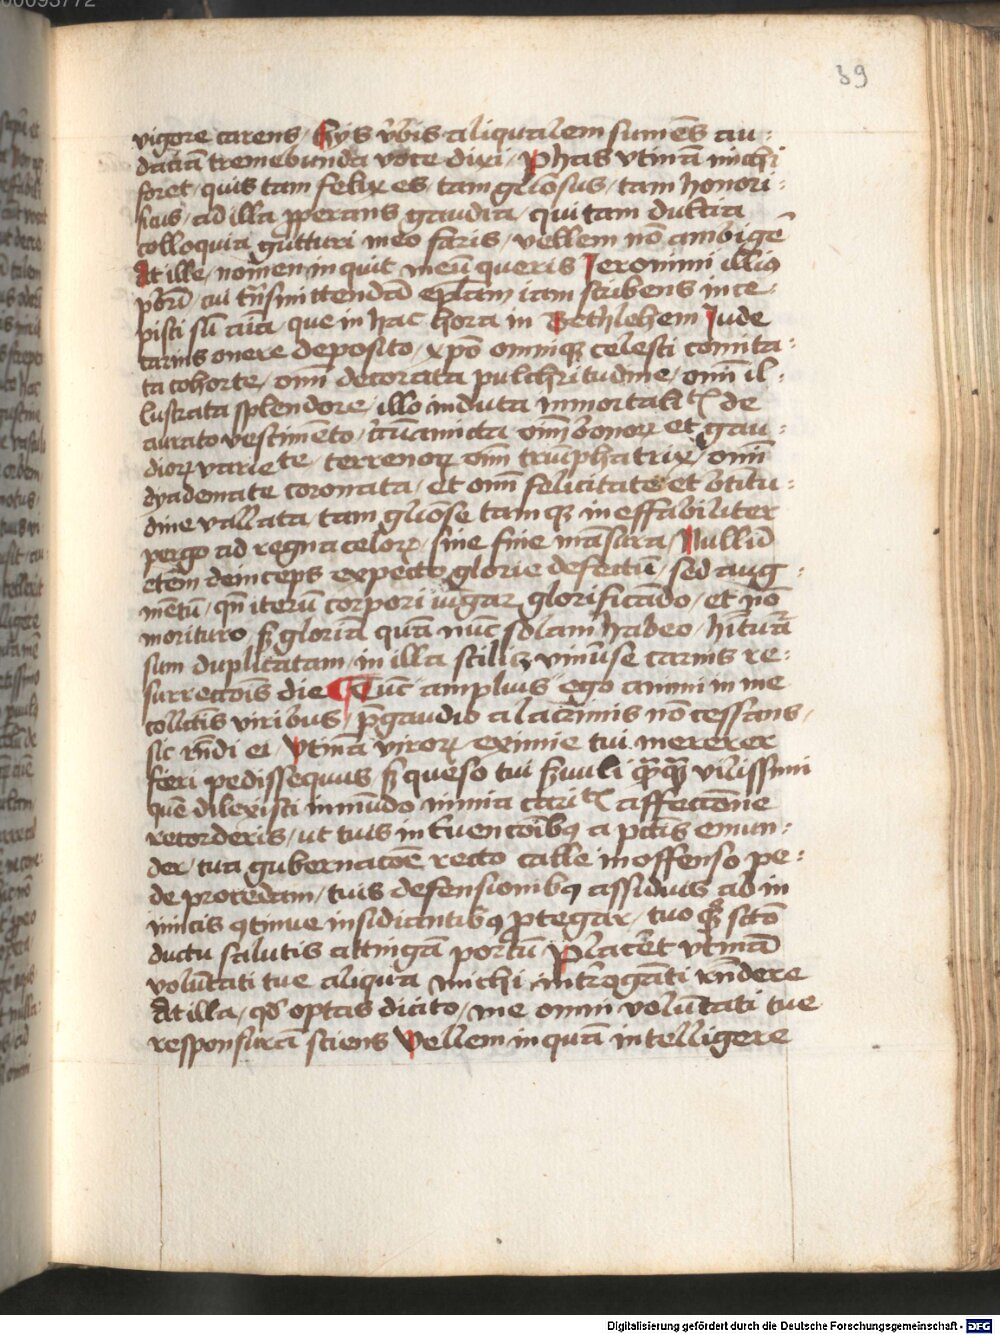 39
vigore carens / Hijs vbis aliqualem sumēs au-
daciā tremebunda voce dixi / Phas vtinā michi
foret / quis tam felix es / tam gliosus / tam honori-
ficus / ad illa pperans gaudia / qui tam dulcia
colloquia gutturi meo faris / vellem nō ambigē
At ille / nomen inquit meū queris Jeronimi illius
pbri / cui trāsmittendā eplam iam scribens ince-
pisti sū aīa / que in hac hora in Bethlehem Jude
carnis onere deposito / xpo omniqz celesti comita-
ta cohorte / omi decorata pulchritudine / omi il-
lustrata splendore / illo induta immortalitatis de
aurato vestimento / circūamicta omi bonoꝝ et gau-
dioꝝ variete / terrenoꝝ omī triūphatrix / omī
dyademate coronata / et omī felicitate et btitu-
dine vallata / tam gliose tamqz ineffabiliter
pergo ad regna celoꝝ / sine fine māsura / Nullū
etēm deinceps expecto glorie defectū / sed aug-
mētū / qn̄ iterū corpori iūgar glorificādo / et nō
morituro / sꝫ gloriā quā nūc solam habeo / hītura
sum duplicatam / in illa scilicꝫ vniuse carnis re-
surrectōis die Tūc amplius ego animi in me
collectis viribus / p̄ gaudio a lacrimis nō cessans /
sic rn̄di ei / Vtinā viroꝝ eximie tui mererer
fieri pedissequus sꝫ queso tui suuli qmqm vilissimi
quē dilexisti in mūdo nimia caritatis affectione
recorderis / ut tuis interuencōibꝰ a pctis emun-
der / tua gubernacōe recto calle inoffenso pe-
de procedam / tuis defensionibꝰ assiduis ab in
imicis ꝯtinue insidiantibꝰ ptegar / tuo qꝫ scto
ductu salutis attingā portū Placeret vtinā
volūtati tue aliqua michi intrroganti rn̄dere
At illa / qd optas dicito / me omni volūtati tue
responsurā sciens Vellem inquā intelligere
Digitalisierung gefördert durch die Deutsche Forschungsgemeinschaft - DFG